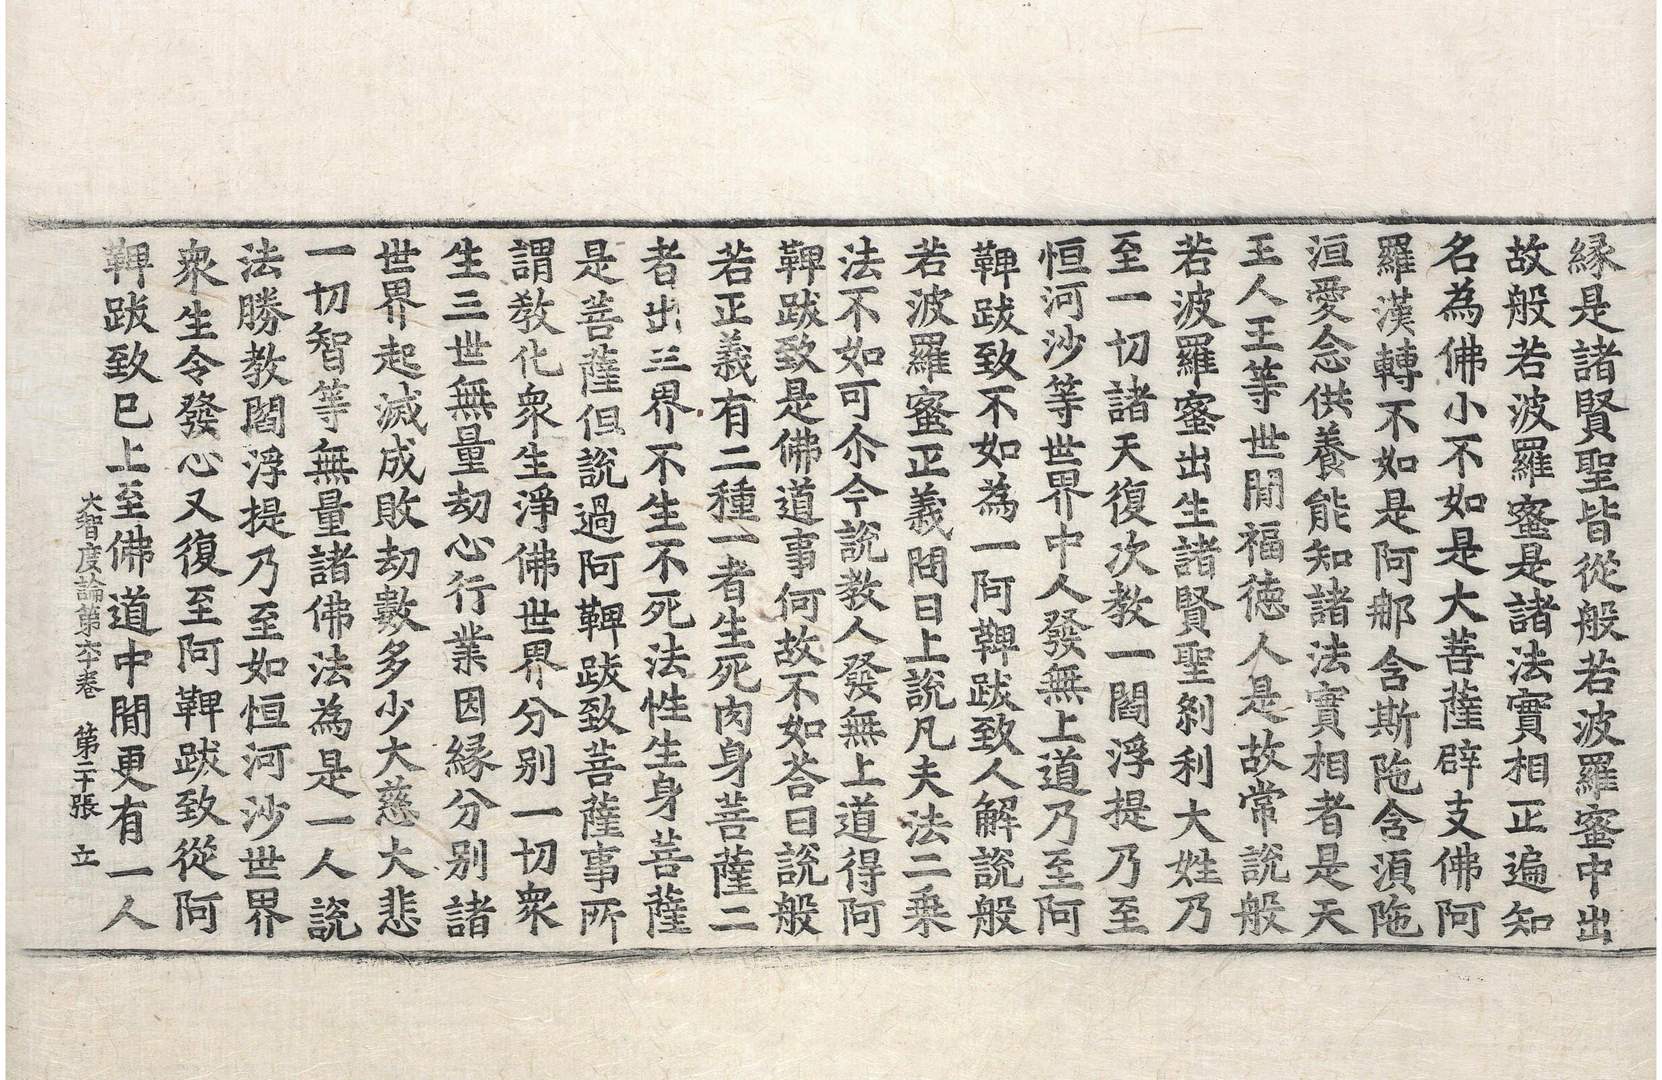 縁是諸賢聖皆從般若波羅蜜中出
故般若波羅蜜是諸法實相正遍知
名為佛小不如是大菩薩辟支佛阿
羅漢轉不如是阿那含斯陁含湏陁
洹愛念供養能知諸法實相者是天
王人王等世閒福徳人是故常說般
若波羅蜜出生諸賢聖剎利大姓乃
至一切諸天復次教一閻浮提乃至
恒河沙等世界中人發無上道乃至阿
鞞跋致不如為一阿鞞跋致人解說般
若波羅蜜正義問曰上說凡夫法二乘
法不如可尒今說教人發無上道得阿
鞞跋致是佛道事何故不如荅曰說般
若正義有二種一者生死肉身菩薩二
者出三界不生不死法性生身菩薩
是菩薩但說過阿鞞跋致菩薩事所
謂教化衆生淨佛世界分別一切衆
生三世無量劫心行業因縁分別諸
世界起滅成敗劫數多少大慈大悲
一切智等無量諸佛法為是一人說
法勝教閻浮提乃至如恒河沙世界
衆生令發心又復至阿鞞跋致從阿
鞞跋致已上至佛道中閒更有一人
大智度論第六十卷　第二十張　立